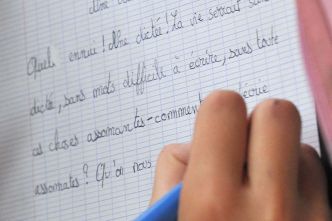 Une dictée
Quel ennui ! Une dictée ! La vie serait sans
dictée, sans mots difficile à écrire, sans toute
ces choses assomantes - comment écrie
assomates ? Qu'on nous